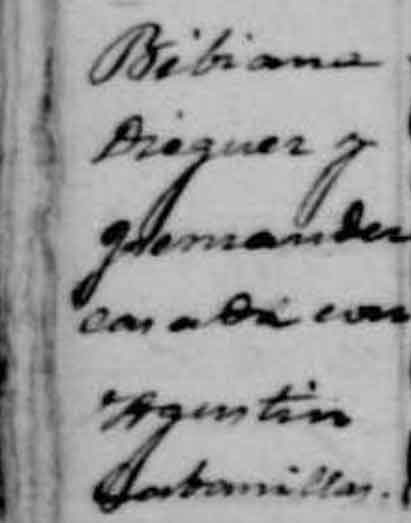 Bibiana
Dieguez y
Fernandez
casada con
Agustin
Cabanillas.